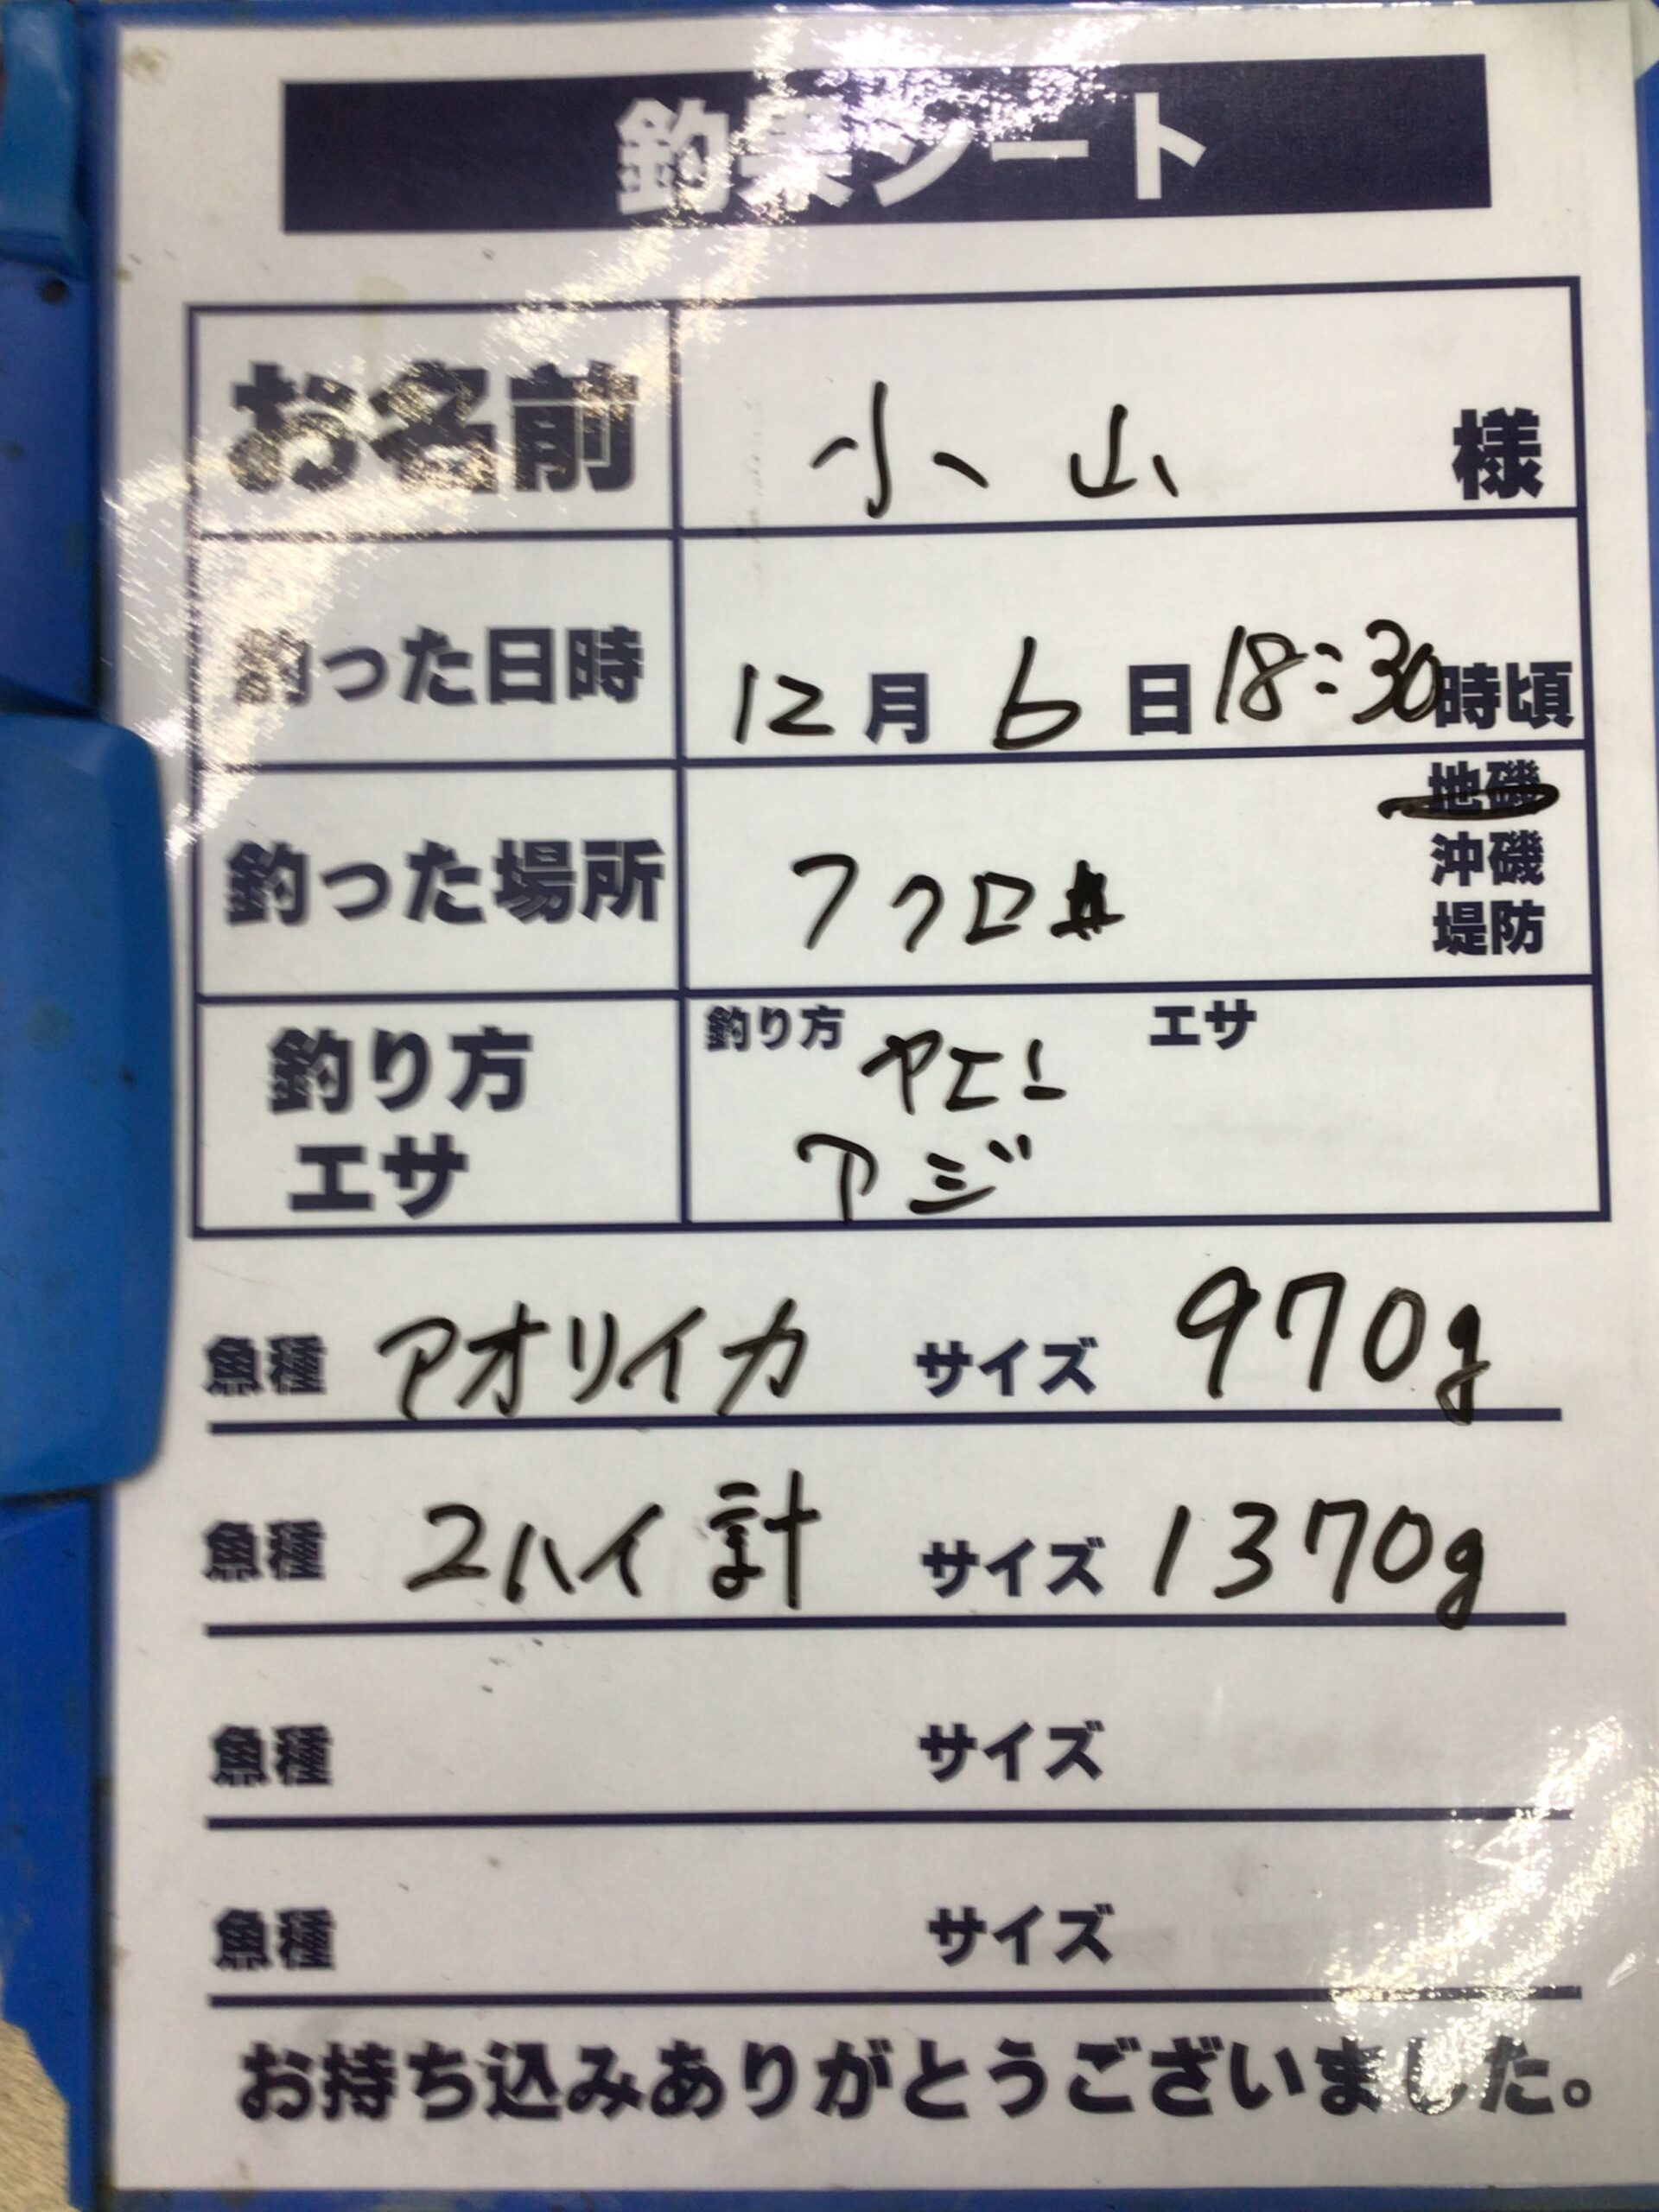 釣果シート
お名前 小山 様
釣った日時 12月6日18:30時頃
地磯
釣った場所 フクロ 沖磯
堤防
釣り方 釣り方 ヤエン エサ
エサ アジ
魚種 アオリイカ サイズ 970g
魚種 2ハイ計 サイズ 1370g
魚種 サイズ
魚種 サイズ
お持ち込みありがとうございました。